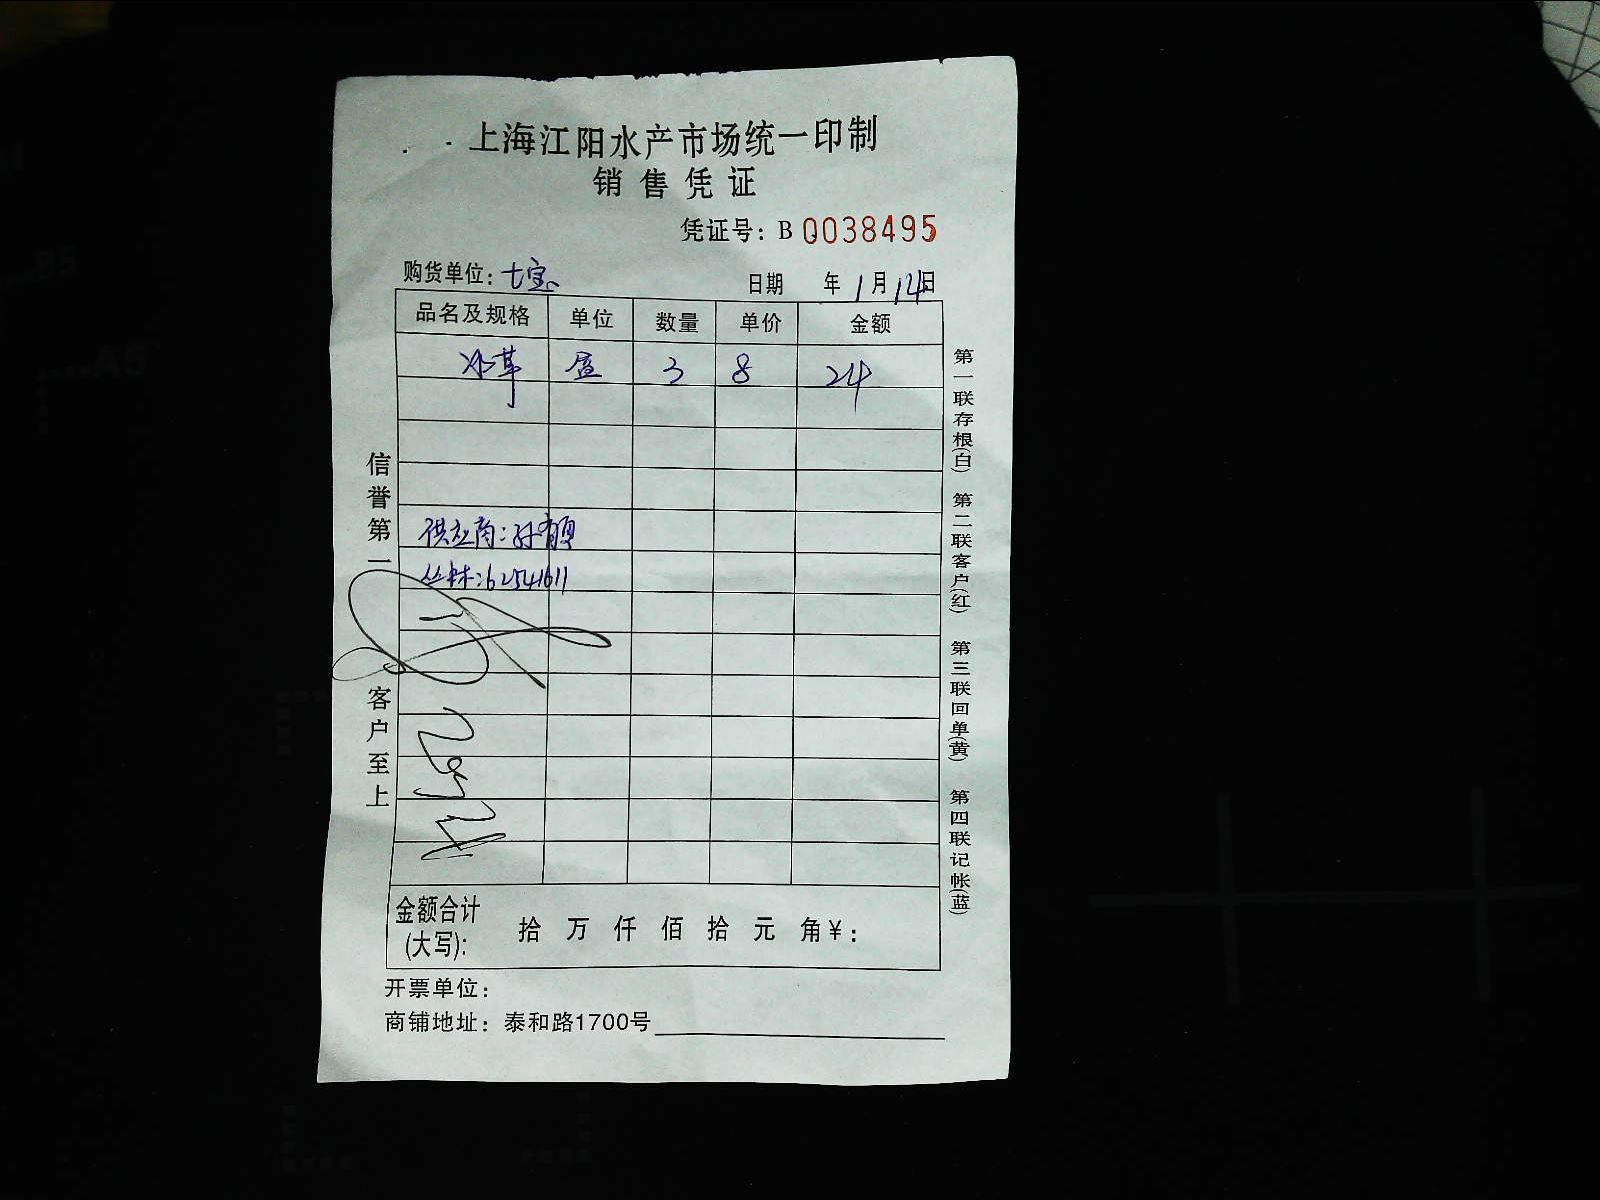 上海江阳水产市场统一印制
销售凭证
凭证号：B 0038495
购货单位：七宝 日期 年 1 月 14 日
品名及规格 单位 数量 单价 金额
冰草 盒 3 8 24
供应商：孙有顺
丛林：62541611
信誉第一 客户至上
第一联存根(白) 第二联客户(红) 第三联回单(黄) 第四联记帐(蓝)
金额合计 拾 万 仟 佰 拾 元 角 ¥：
(大写)：
开票单位：
商铺地址：泰和路1700号